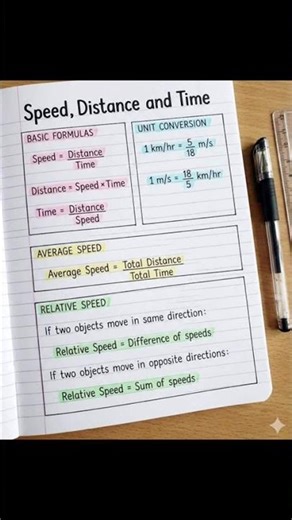 Speed, Distance and Time
BASIC FORMULAS
Speed = Distance
Time
Distance = Speed × Time
Time = Distance
Speed
UNIT CONVERSION
1 km/hr = 5/18 m/s
1 m/s = 18/5 km/hr
AVERAGE SPEED
Average Speed = Total Distance
Total Time
RELATIVE SPEED
If two objects move in same direction:
Relative Speed = Difference of speeds
If two objects move in opposite directions:
Relative Speed = Sum of speeds